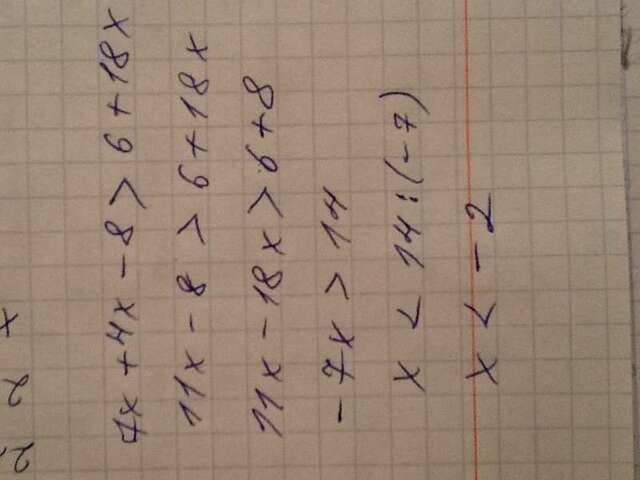 7x + 4x - 8 > 6 + 18x
11x - 8 > 6 + 18x
11x - 18x > 6 + 8
-7x > 14
x < 14 : (-7)
x < -2